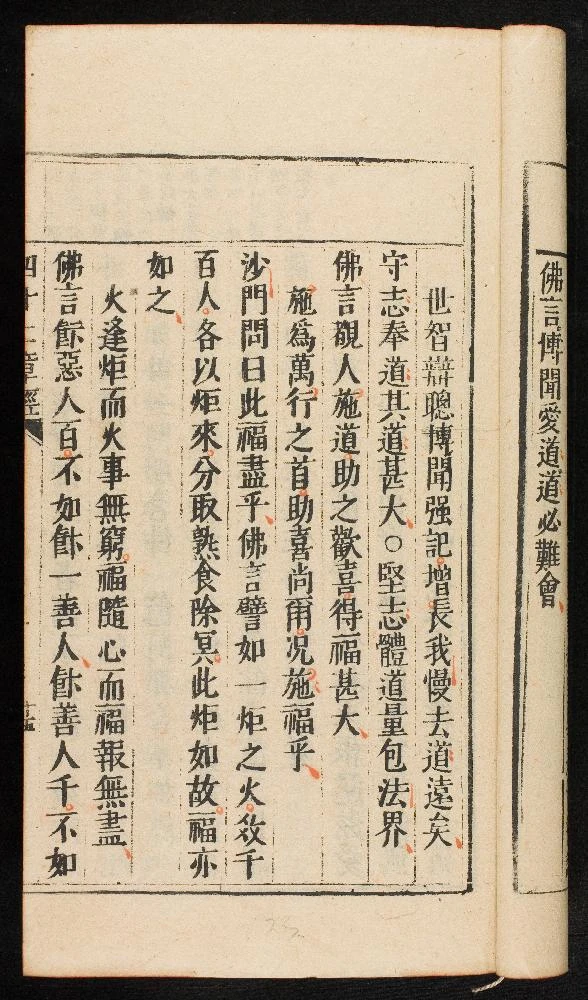 佛言博聞愛道道必難會
世智辯聰博聞强記增長我慢去道遠矣
守志奉道其道甚大○堅志體道量包法界
佛言覩人施道助之歡喜得福甚大
施爲萬行之首助喜尚爾况施福乎
沙門問曰此福盡乎佛言譬如一炬之火數千
百人各以炬來分取熟食除冥此炬如故福亦
如之
火逢炬而火事無窮福隨心而福報無盡
佛言飯惡人百不如飯一善人飯善人千不如
四十二章經